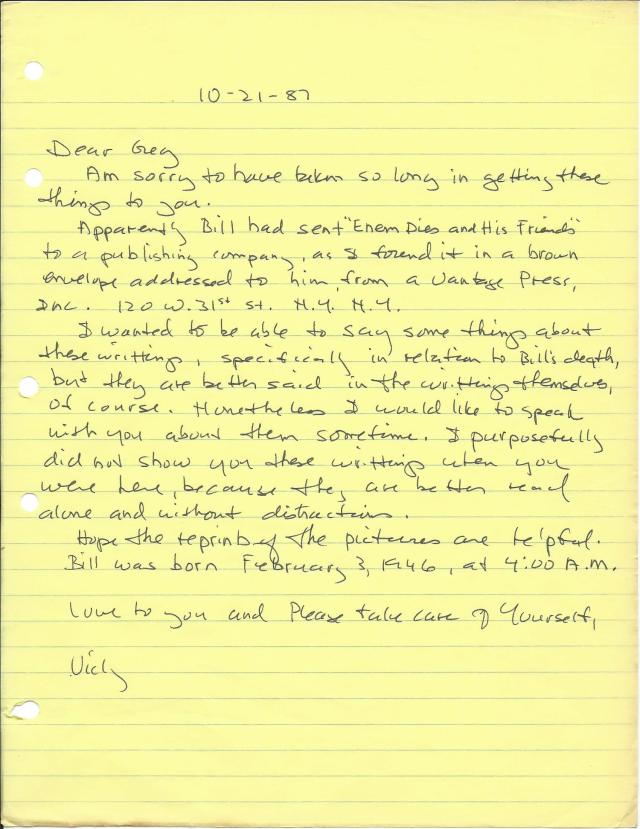 10-21-87
Dear Greg
Am sorry to have taken so long in getting these
things to you.
Apparently Bill had sent "Enem Dies and His Friends"
to a publishing company, as I found it in a brown
envelope addressed to him from a Vantage Press,
Inc. 120 W. 31st St. N.Y. N.Y.
I wanted to be able to say some things about
these writtings, specifically in relation to Bill's death,
but they are better said in the writtings themselves,
of course. Nonetheless I would like to speak
with you about them sometime. I purposefully
did not show you these writtings when you
were here, because they are better read
alone and without distractions.
Hope the reprints of the pictures are helpful.
Bill was born February 3, 1946, at 4:00 A.M.
Love to you and Please take care of Yourself,
Vicky